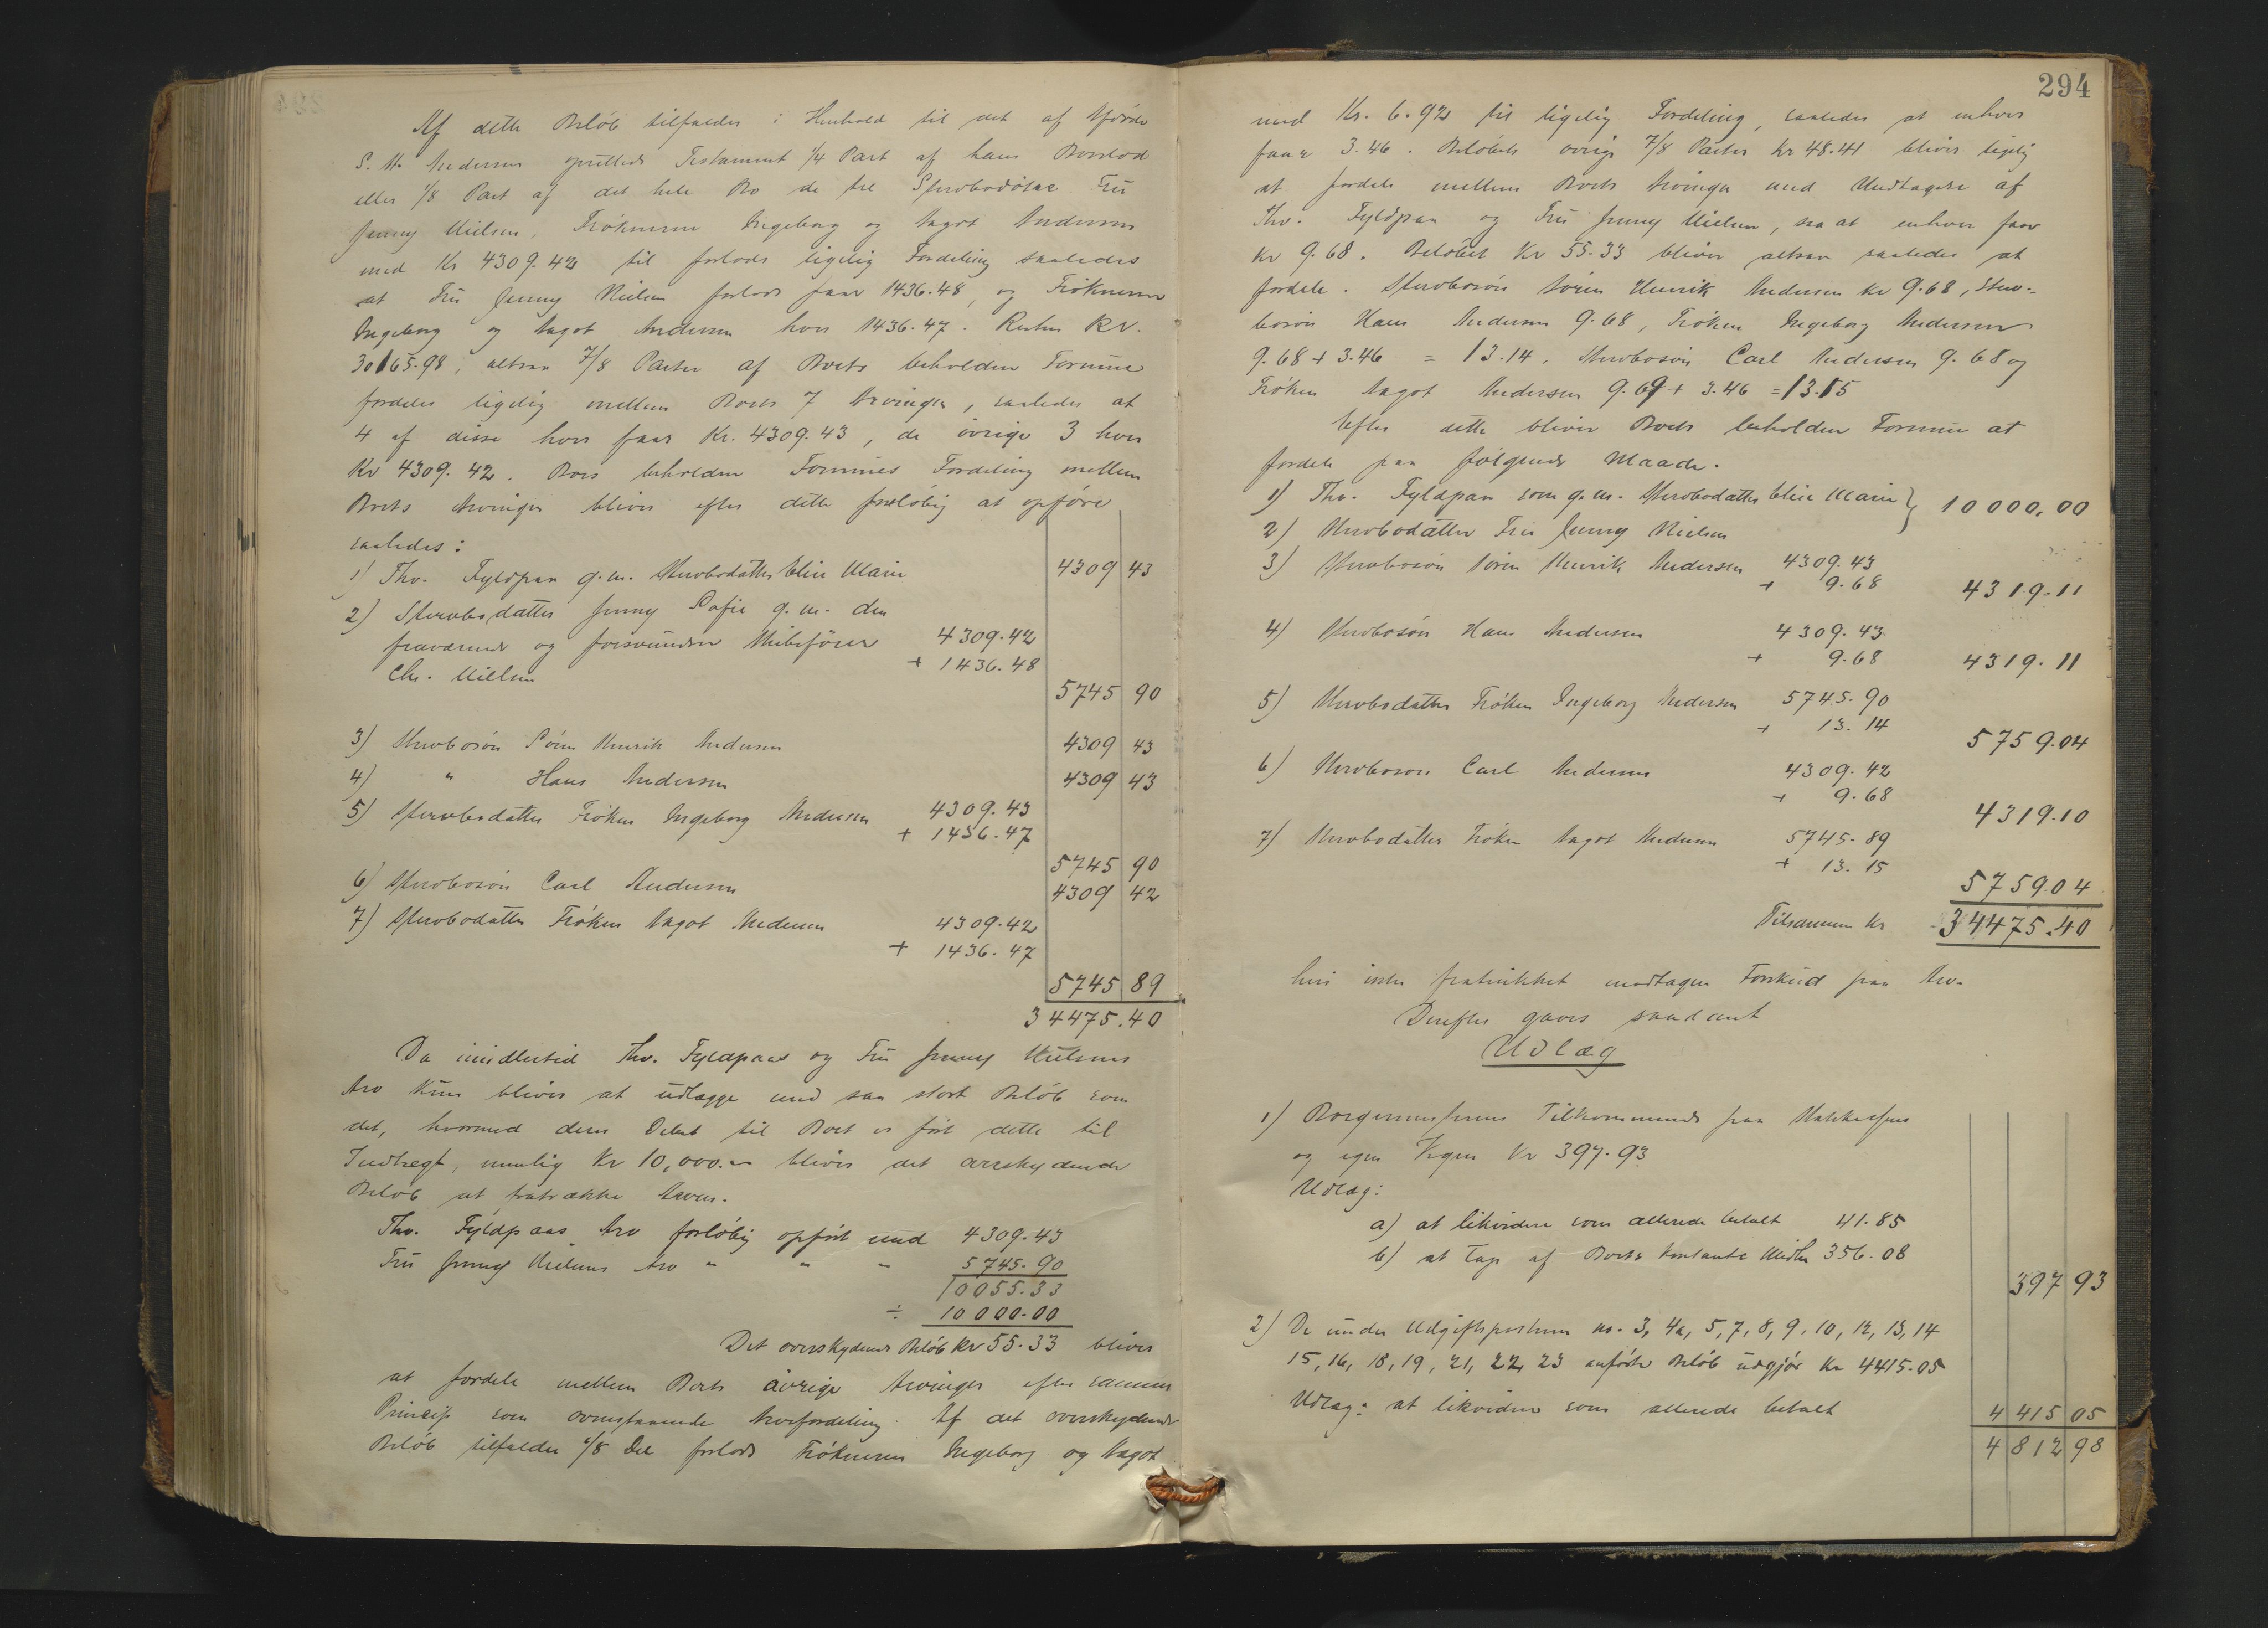 Af dette Beløb tilfalder i Henhold til det af Afdøde
S. H. Andersen oprettede Testament 1/4 Part af hans Boeslod
eller 1/8 Part af det hele Bo de tre Stervbodøtre Fru
Jenny Nielsen, Frøknerne Ingeborg og Aagot Andersen
med Kr 4309.42 til forlods ligelig Fordeling saaledes
at Fru Jenny Nielsen forlods faar 1436.48, og Frøknerne
Ingeborg og Aagot Andersen hver 1436.47. Resten Kr.
30165.98, altsaa 7/8 Parter af Boets beholdne Formue
fordeles ligelig mellem Boets 7 Arvinger, saaledes at
4 af disse hver faar Kr. 4309.43, de øvrige 3 hver
Kr 4309.42. Boets beholdne Formues Fordeling mellem
Boets Arvinger bliver efter dette foreløbig at opføre
saaledes:
1) Thv. Fyldpaa g.m. Stervbodatter Eline Marie 4309 43
2) Stervbodatter Jenny Sofie g.m. den
fraværende og forsvundne Skibsfører 4309.42
Chr. Nielsen + 1436.48
5745 90
3) Stervbosøn Søren Henrik Andersen 4309 43
4) " Hans Andersen 4309 43
5) Stervbodatter Frøken Ingeborg Andersen 4309.43
+ 1436.47
5745 90
6) Stervbosøn Carl Andersen 4309 42
7) Stervbodatter Frøken Aagot Andersen 4309.42
+ 1436.47
5745 89
34475.40
Da imidlertid Thv. Fyldpaas og Fru Jenny Nielsens
Arv kun bliver at udlægge med saa stort Beløb som
det, hvormed deres Debet til Boet er ført dette til
Indtægt, nemlig Kr 10,000.- bliver det overskydende
Beløb at fratrække Arven.
Thv. Fyldpaas Arv foreløbig opført med 4309.43
Fru Jenny Nielsens Arv " " " 5745.90
10055.33
÷ 10000.00
Det overskydende Beløb Kr 55.33 bliver
at fordele mellem Boets øvrige Arvinger efter samme
Princip som ovenstaaende Arvefordeling. Af det overskydende
Beløb tilfalder 1/8 Del forlods Frøknerne Ingeborg og Aagot
294
med Kr. 6.92 til ligelig Fordeling, saaledes at enhver
faar 3.46. Beløbets øvrige 7/8 Parter Kr 48.41 bliver ligelig
at fordele mellem Boets Arvinger med Undtagelse af
Thv. Fyldpaa og Fru Jenny Nielsen, saa at enhver faar
Kr 9.68. Beløbet Kr 55.33 bliver altsaa saaledes at
fordele. Stervbosøn Søren Henrik Andersen Kr 9.68, Sterv-
bosøn Hans Andersen 9.68, Frøken Ingeborg Andersen
9.68 + 3.46 = 13.14. Stervbosøn Carl Andersen 9.68 og
Frøken Aagot Andersen 9.69 + 3.46 = 13.15
Efter dette bliver Boets beholdne Formue at
fordele paa følgende Maade.
1) Thv. Fyldpaa som g.m. Stervbodatter Eline Marie } 10000.00
2) Stervbodatter Fru Jenny Nielsen
3) Stervbosøn Søren Henrik Andersen 4309.43
+ 9.68 4319.11
4) Stervbosøn Hans Andersen 4309.43
+ 9.68 4319.11
5) Stervbodatter Frøken Ingeborg Andersen 5745.90
+ 13.14 5759.04
6) Stervbosøn Carl Andersen 4309.42
+ 9.68 4319.10
7) Stervbodatter Frøken Aagot Andersen 5745.89
+ 13.15 5759.04
Tilsammen Kr 34475.40
heri ikke fratrukket modtagen Forskud paa Arv.
Derefter gaves saadant
Udlæg
1) Tilkommende paa
og egne Vegne Kr 397.93
Udlæg:
a) at likvidere som allerede betalt 41.85
b) at tage af Boets kontante Midler 356.08
397 93
2) De under Udgiftsposterne no. 3, 4a, 5, 7, 8, 9, 10, 12, 13, 14
15, 16, 18, 19, 21, 22, 23 anførte Beløb udgjør Kr 4415.05
Udlæg: at likvidere som allerede betalt 4 415 05
4 812 98